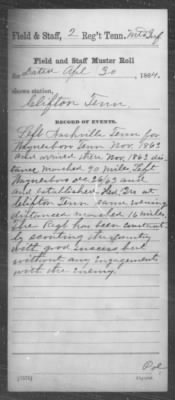 Field & Staff, 2 Reg't Tenn. Mtd Inf
Field and Staff Muster Roll
for Dated Apl 30, 1864.
shows station,
Clifton Tenn.
RECORD OF EVENTS.
Left Nashville Tenn for
Waynesboro Tenn Nov. 1863
and arrived there Nov. 1863 dis
tance marched 90 miles Left
Waynesboro Dec 26/63 and
established Hd Qrs at
Clifton Tenn same evening
distance marched 16 miles.
The Regt has been constantly
scouting the Country
with good success but
without any Engagement
with the Enemy.